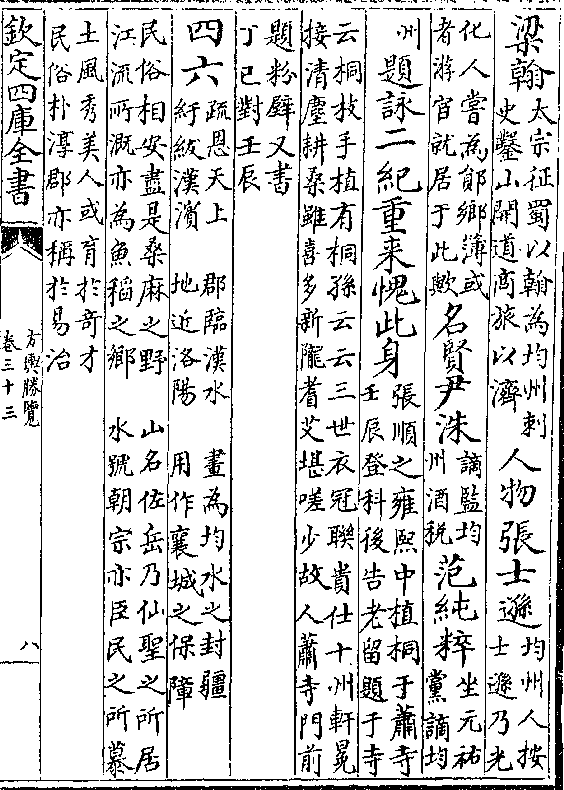 梁翰太宗征蜀以翰為均州刺史鑿山開道商旅以濟 人物張士遜均州人按士遜乃光
化人嘗為鄖鄉簿或者游宦就居于此歟 名賢尹洙謫監均州酒稅 范純粹坐元祐黨謫均
州 題詠二紀重来愧此身張順之雍熙中植桐于蕭寺壬辰登科後告老留題于寺
云桐枝手植有桐孫云云三世衣冠聯貴仕十州軒冕
接清塵耕桑雖喜多新隴耆艾堪嗟少故人蕭寺門前
題粉壁又書
丁巳對壬辰
四六 疏恩天上 紆紱漢濱 郡臨漢水 地近洛陽 畫為均水之封疆 用作襄城之保障
民俗相安盡是桑麻之野 江流所溉亦為魚稻之鄉 山名佐岳乃仙聖之所居 水號朝宗亦臣民之所慕
土風秀美人或育於奇才
民俗朴淳郡亦稱於易治
欽定四庫全書
方輿勝覽
卷三十三
八